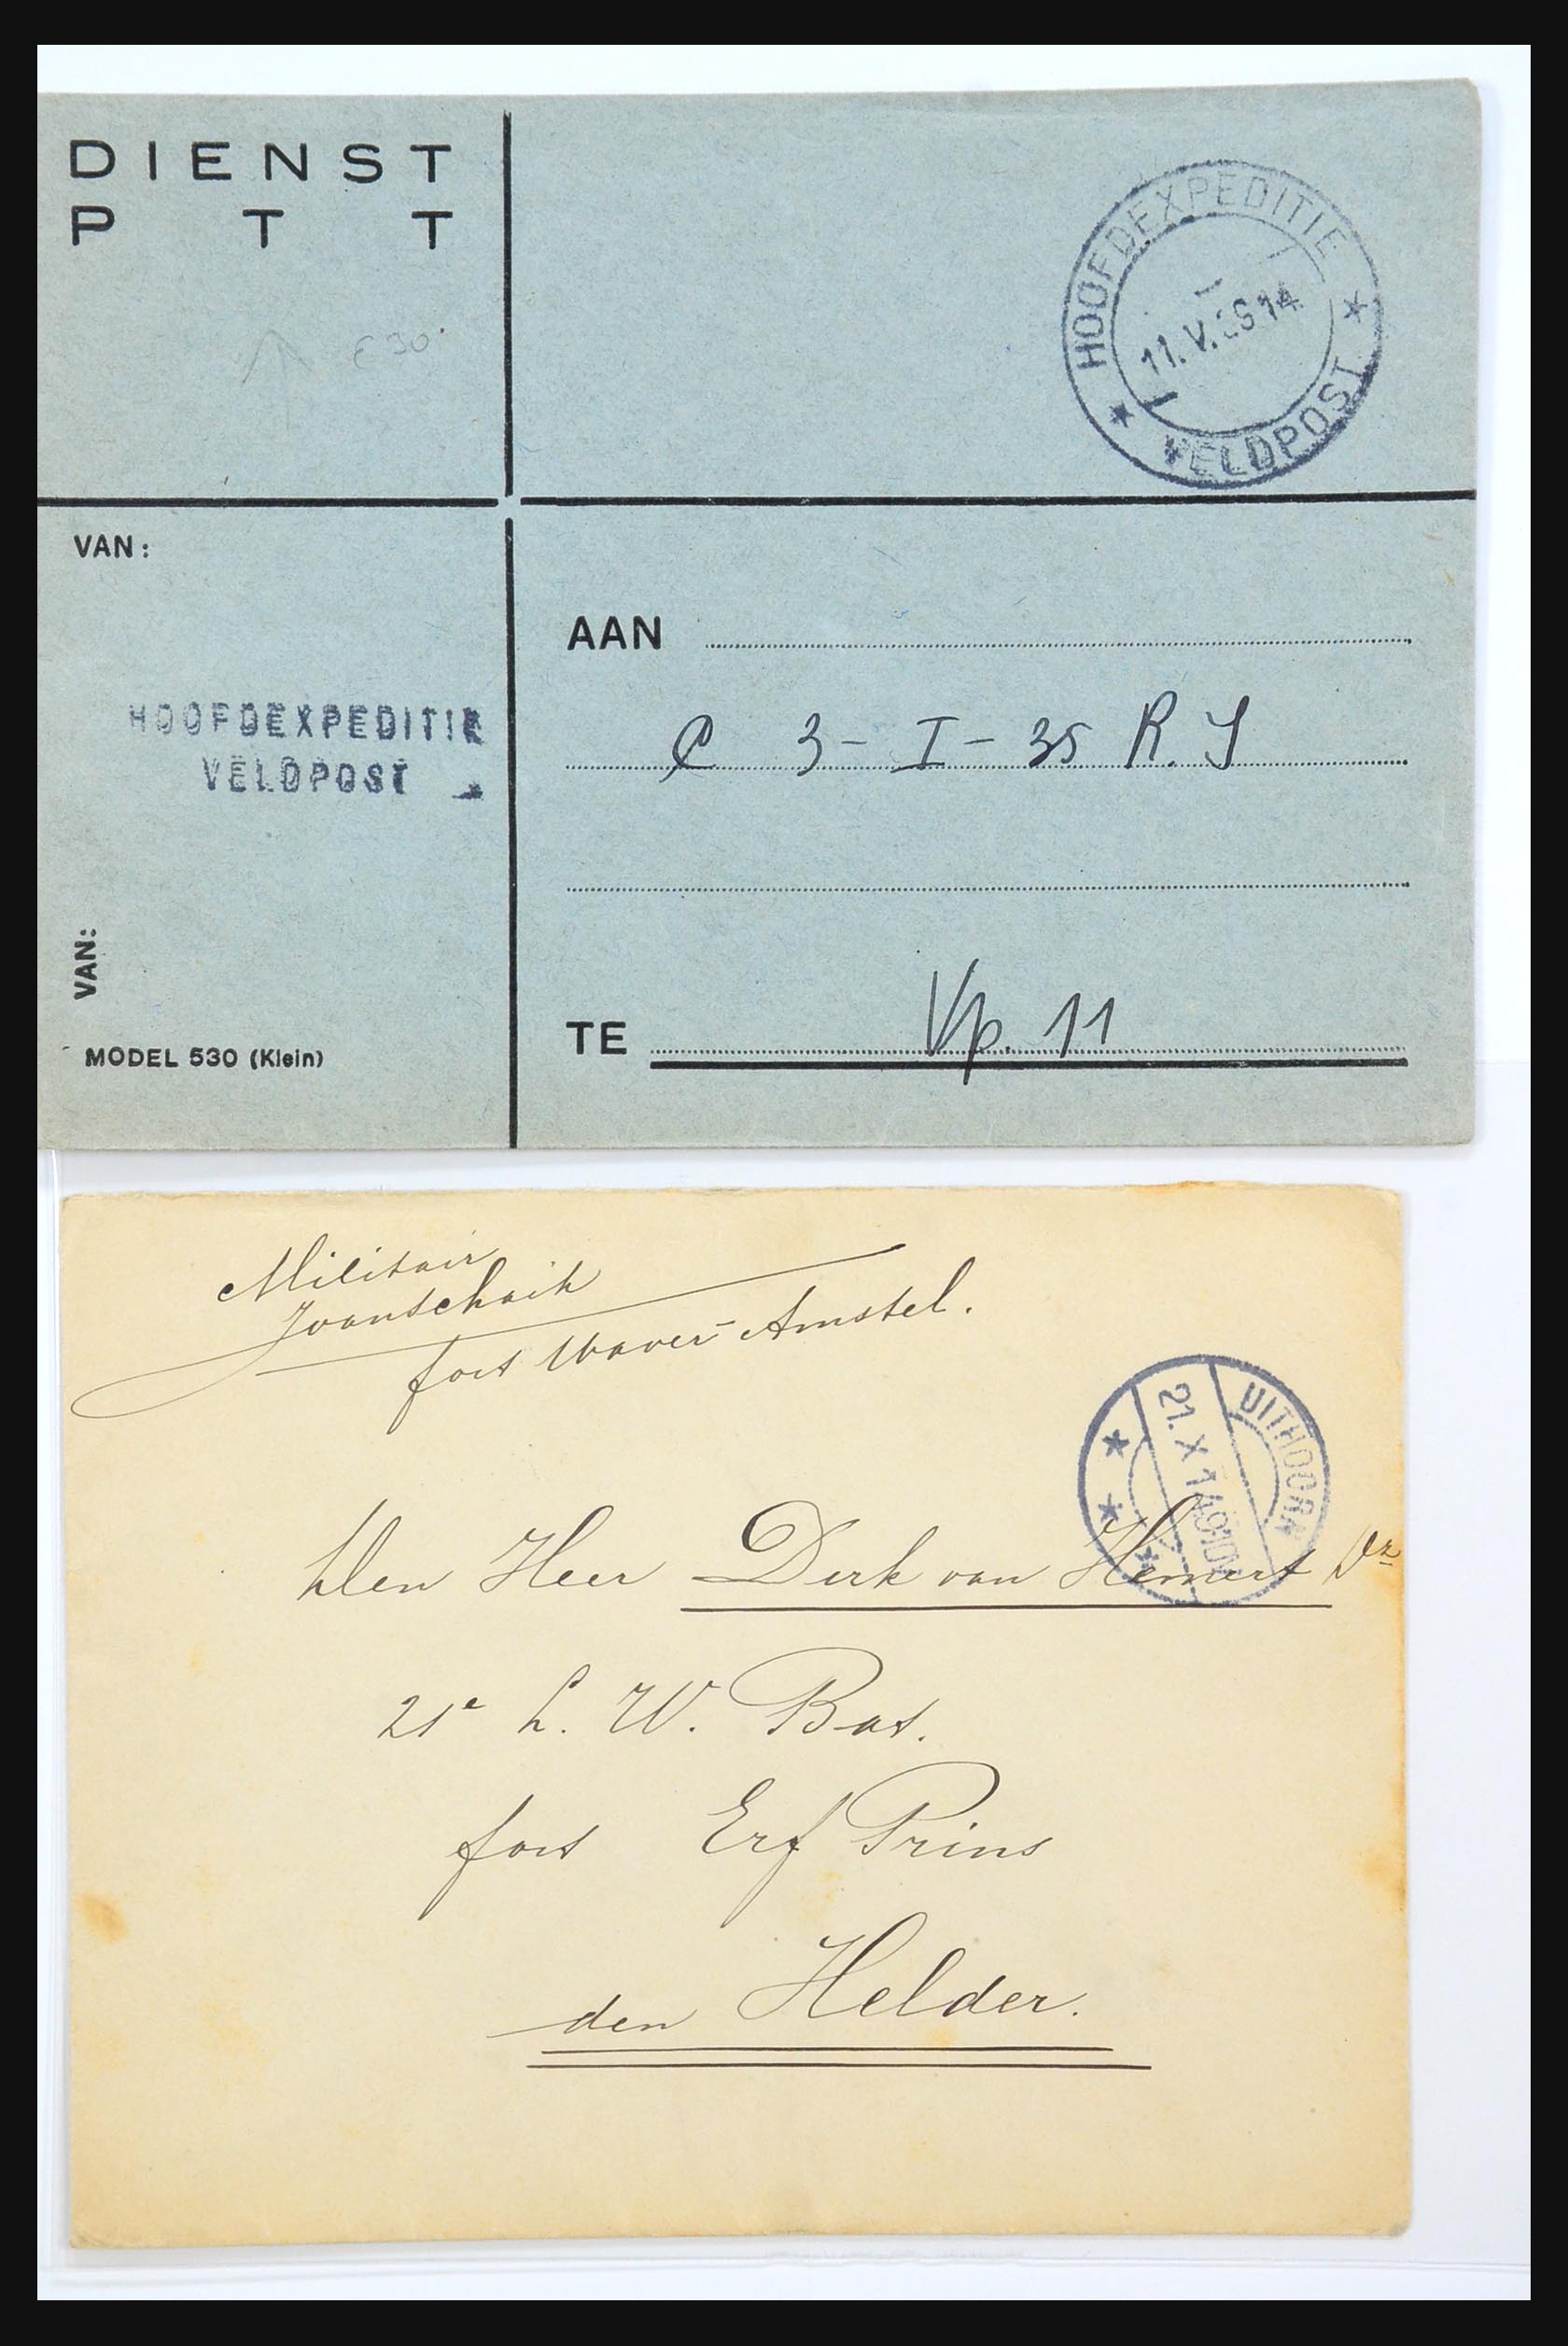 DIENST
P T T
HOOFDEXPEDITIE
VELDPOST
€ 30
VAN:
HOOFDEXPEDITIE
VELDPOST
VAN:
MODEL 530 (Klein)
AAN
C 3 - I - 35 R. I
TE Vp. 11
Militair
JvanSchaik
fort Waver-Amstel.
UITHOORN
21. X 14
Den Heer Dirk van Hemert Dz
21e L. W. Bat.
fort Erf Prins
den Helder.